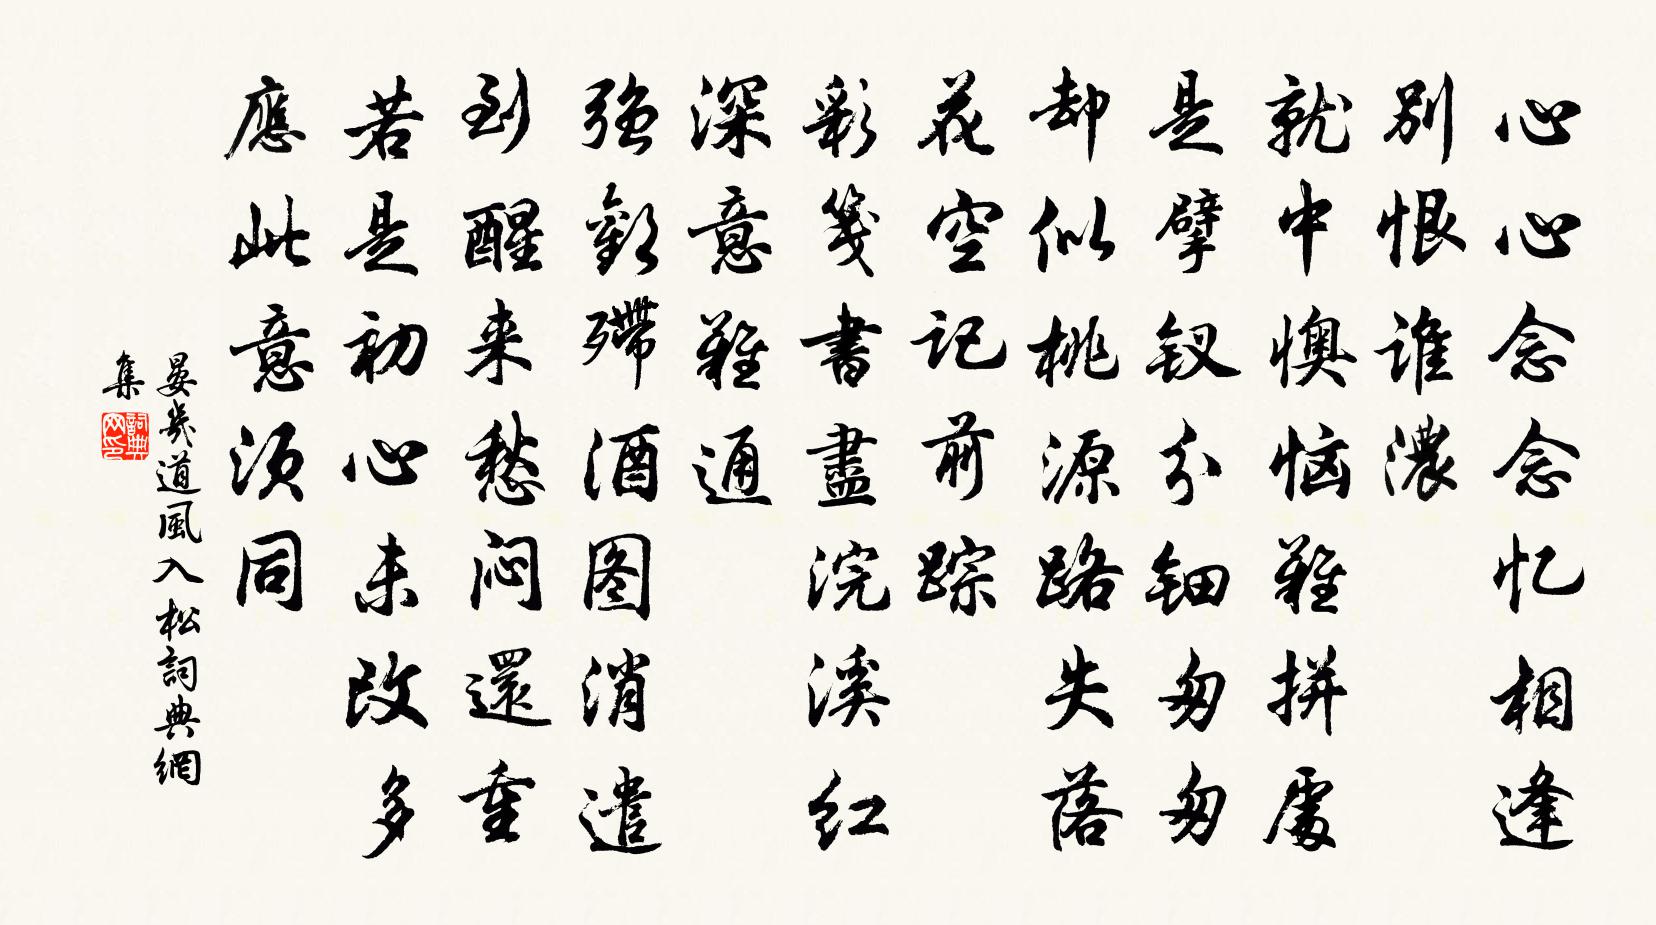 心心念念忆相逢
別恨谁濃
就中懊恼難拼處
是擘钗分钿匆匆
却似桃源路失落
花空记前踪
彩箋書盡浣溪红
深意難通
強歡殢酒图消遣
到醒来愁闷還重
若是初心未改多
應此意须同
晏幾道風入松詞典網
集
詞典网印